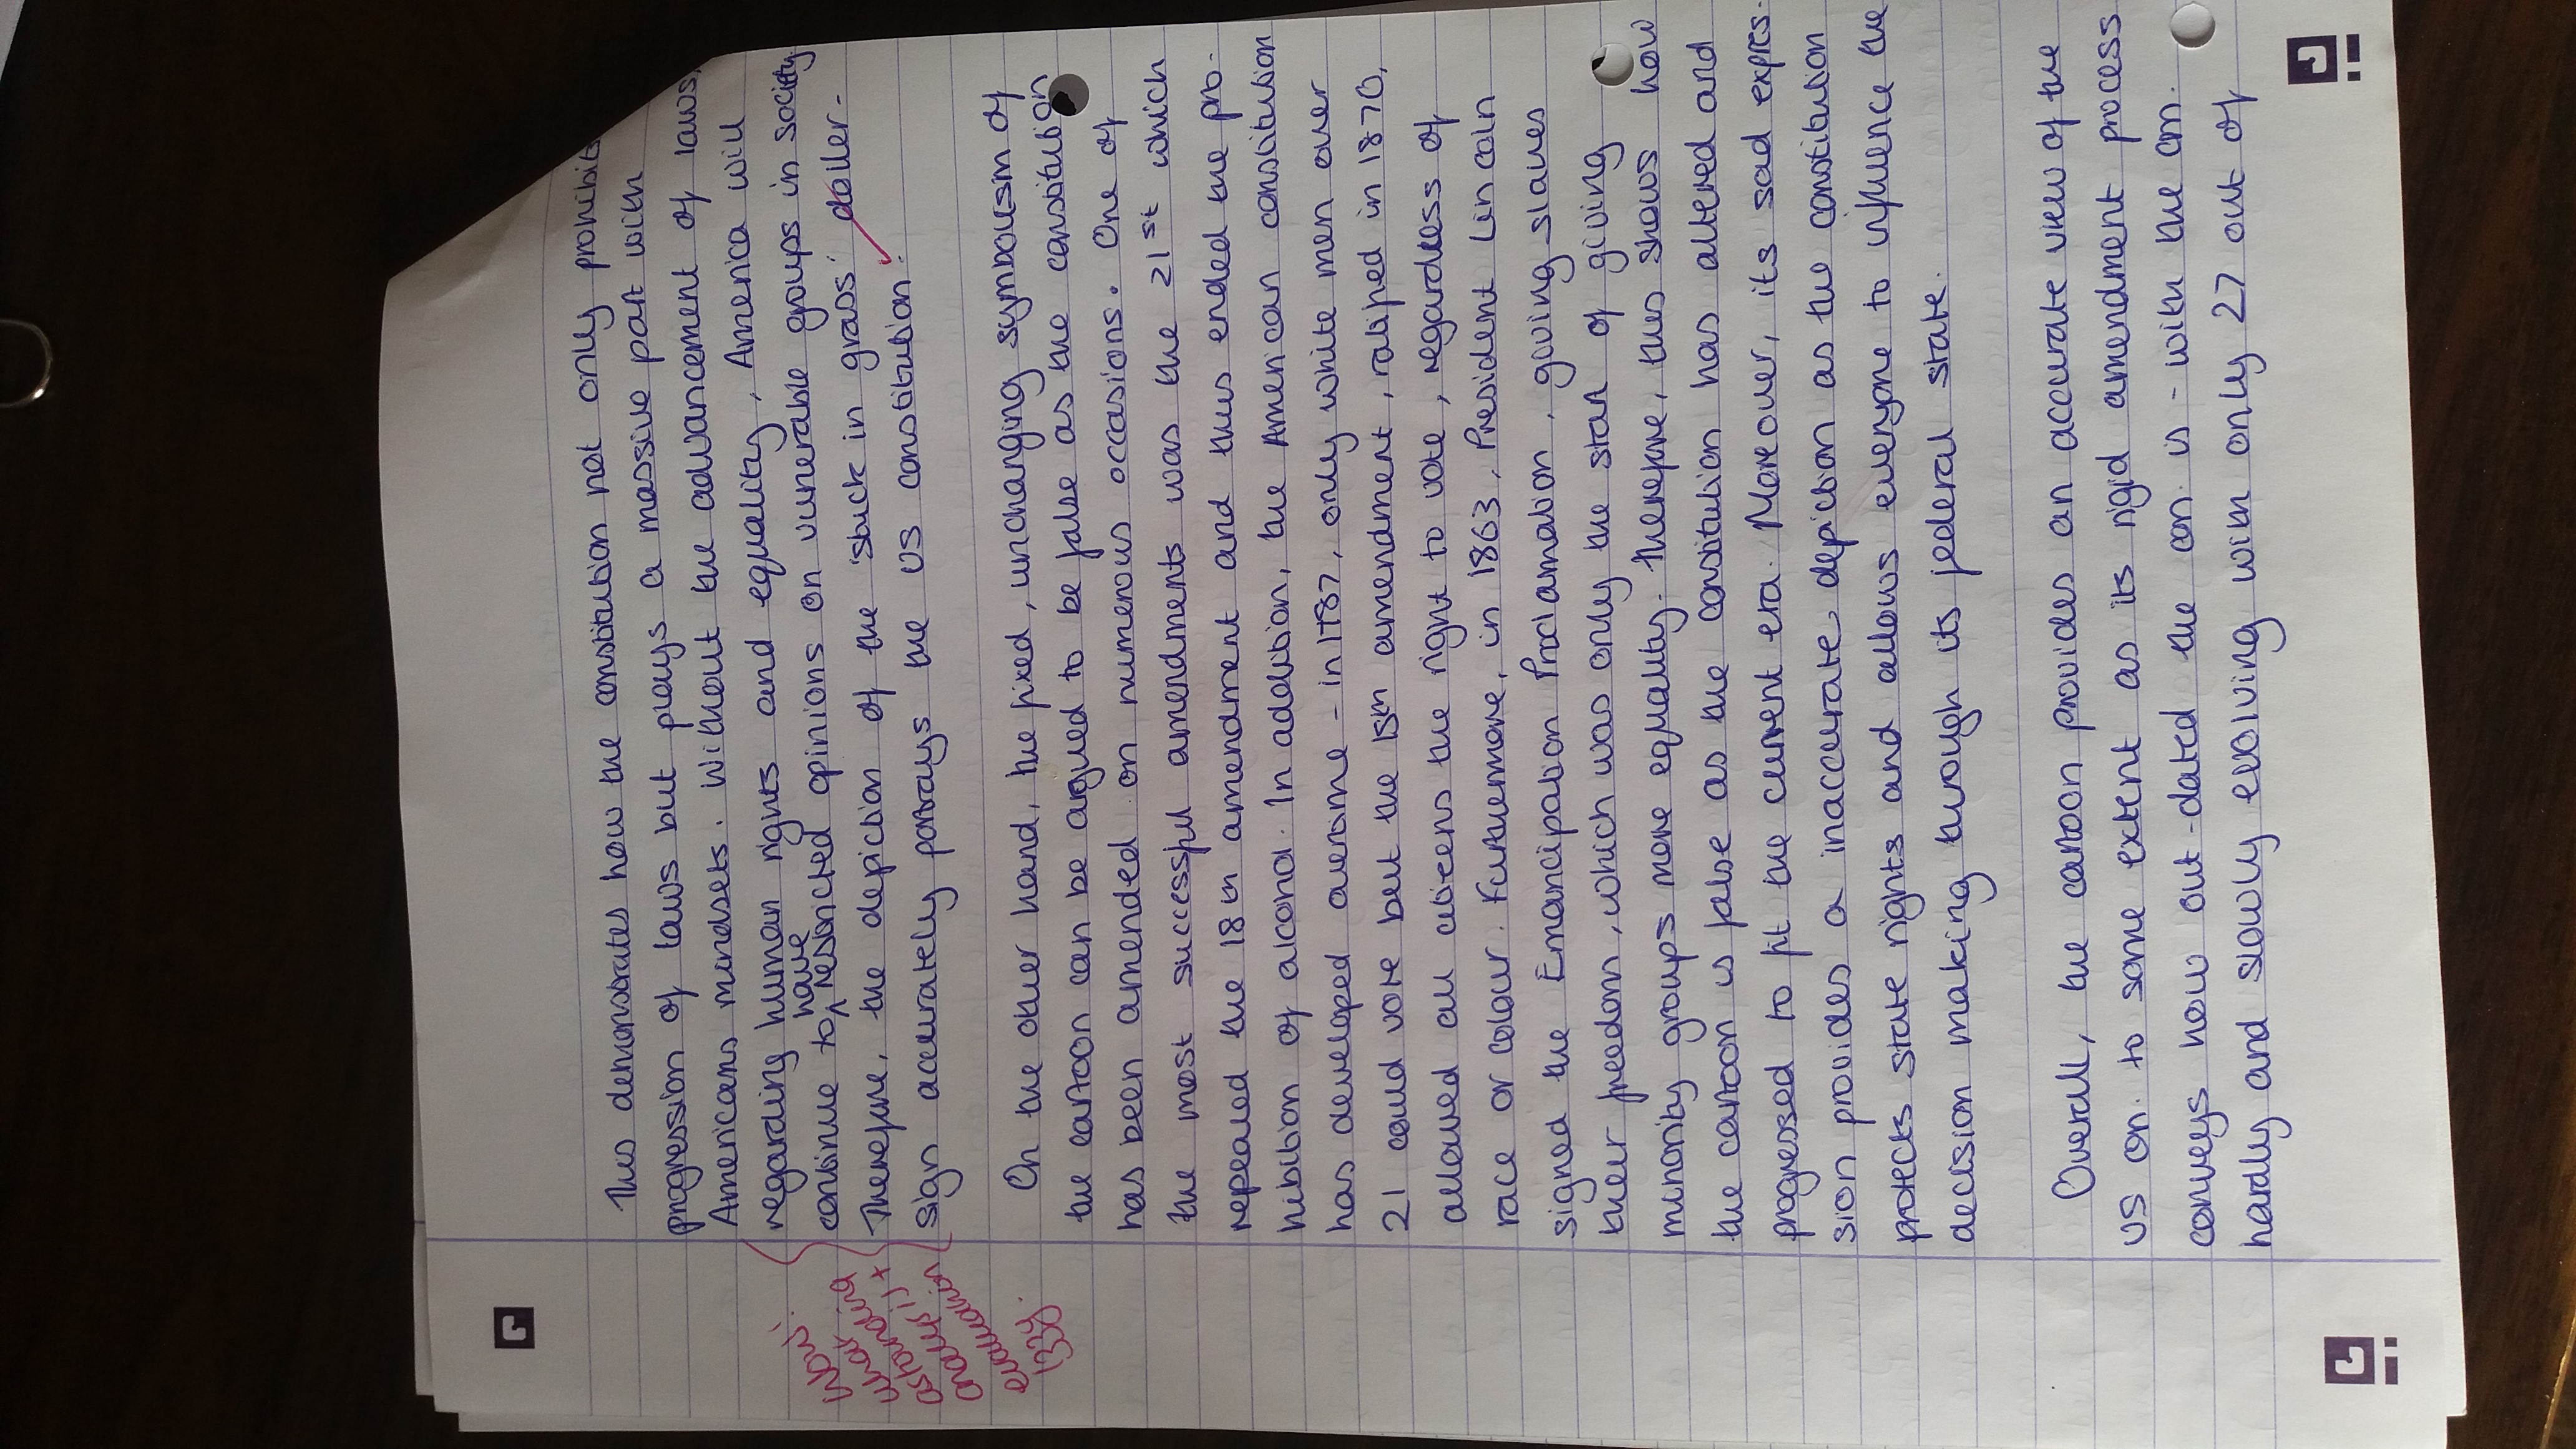 This demonstrates how the constitution not only prohibits
progression of laws but plays a massive part with
Americans mindsets. Without the advancement of laws,
regarding human rights and equality, America will
have
continue to ^ restricted opinions on vunerable groups in society.
Therefore, the depiction of the 'stuck in grass' dollar-
sign accurately portrays the US constitution.
On the other hand, the fixed, unchanging symbolism of
the cartoon can be argued to be false as the constitution
has been amended on numerous occasions. One of
the most successful amendments was the 21st which
repealed the 18th amendment and thus ended the pro-
hibition of alcohol. In addition, the American constitution
has developed overtime - in 1787, only white men over
21 could vote but the 15th amendment, ratified in 1870,
allowed all citizens the right to vote, regardless of
race or colour. Furthermore, in 1863, President Lincoln
signed the Emancipation Proclamation, giving slaves
their freedom, which was only the start of giving
minority groups more equality. Therefore, this shows how
the cartoon is false as the constitution has altered and
progressed to fit the current era. Moreover, its sad expres-
sion provides a inaccurate depiction as the constitution
protects state rights and allows everyone to influence the
decision making through its federal state.
Overall, the cartoon provides an accurate view of the
US on. to some extent as its rigid amendment process
conveys how out-dated the con. is - with the con.
hardly and slowly evolving with only 27 out of
G
G
G